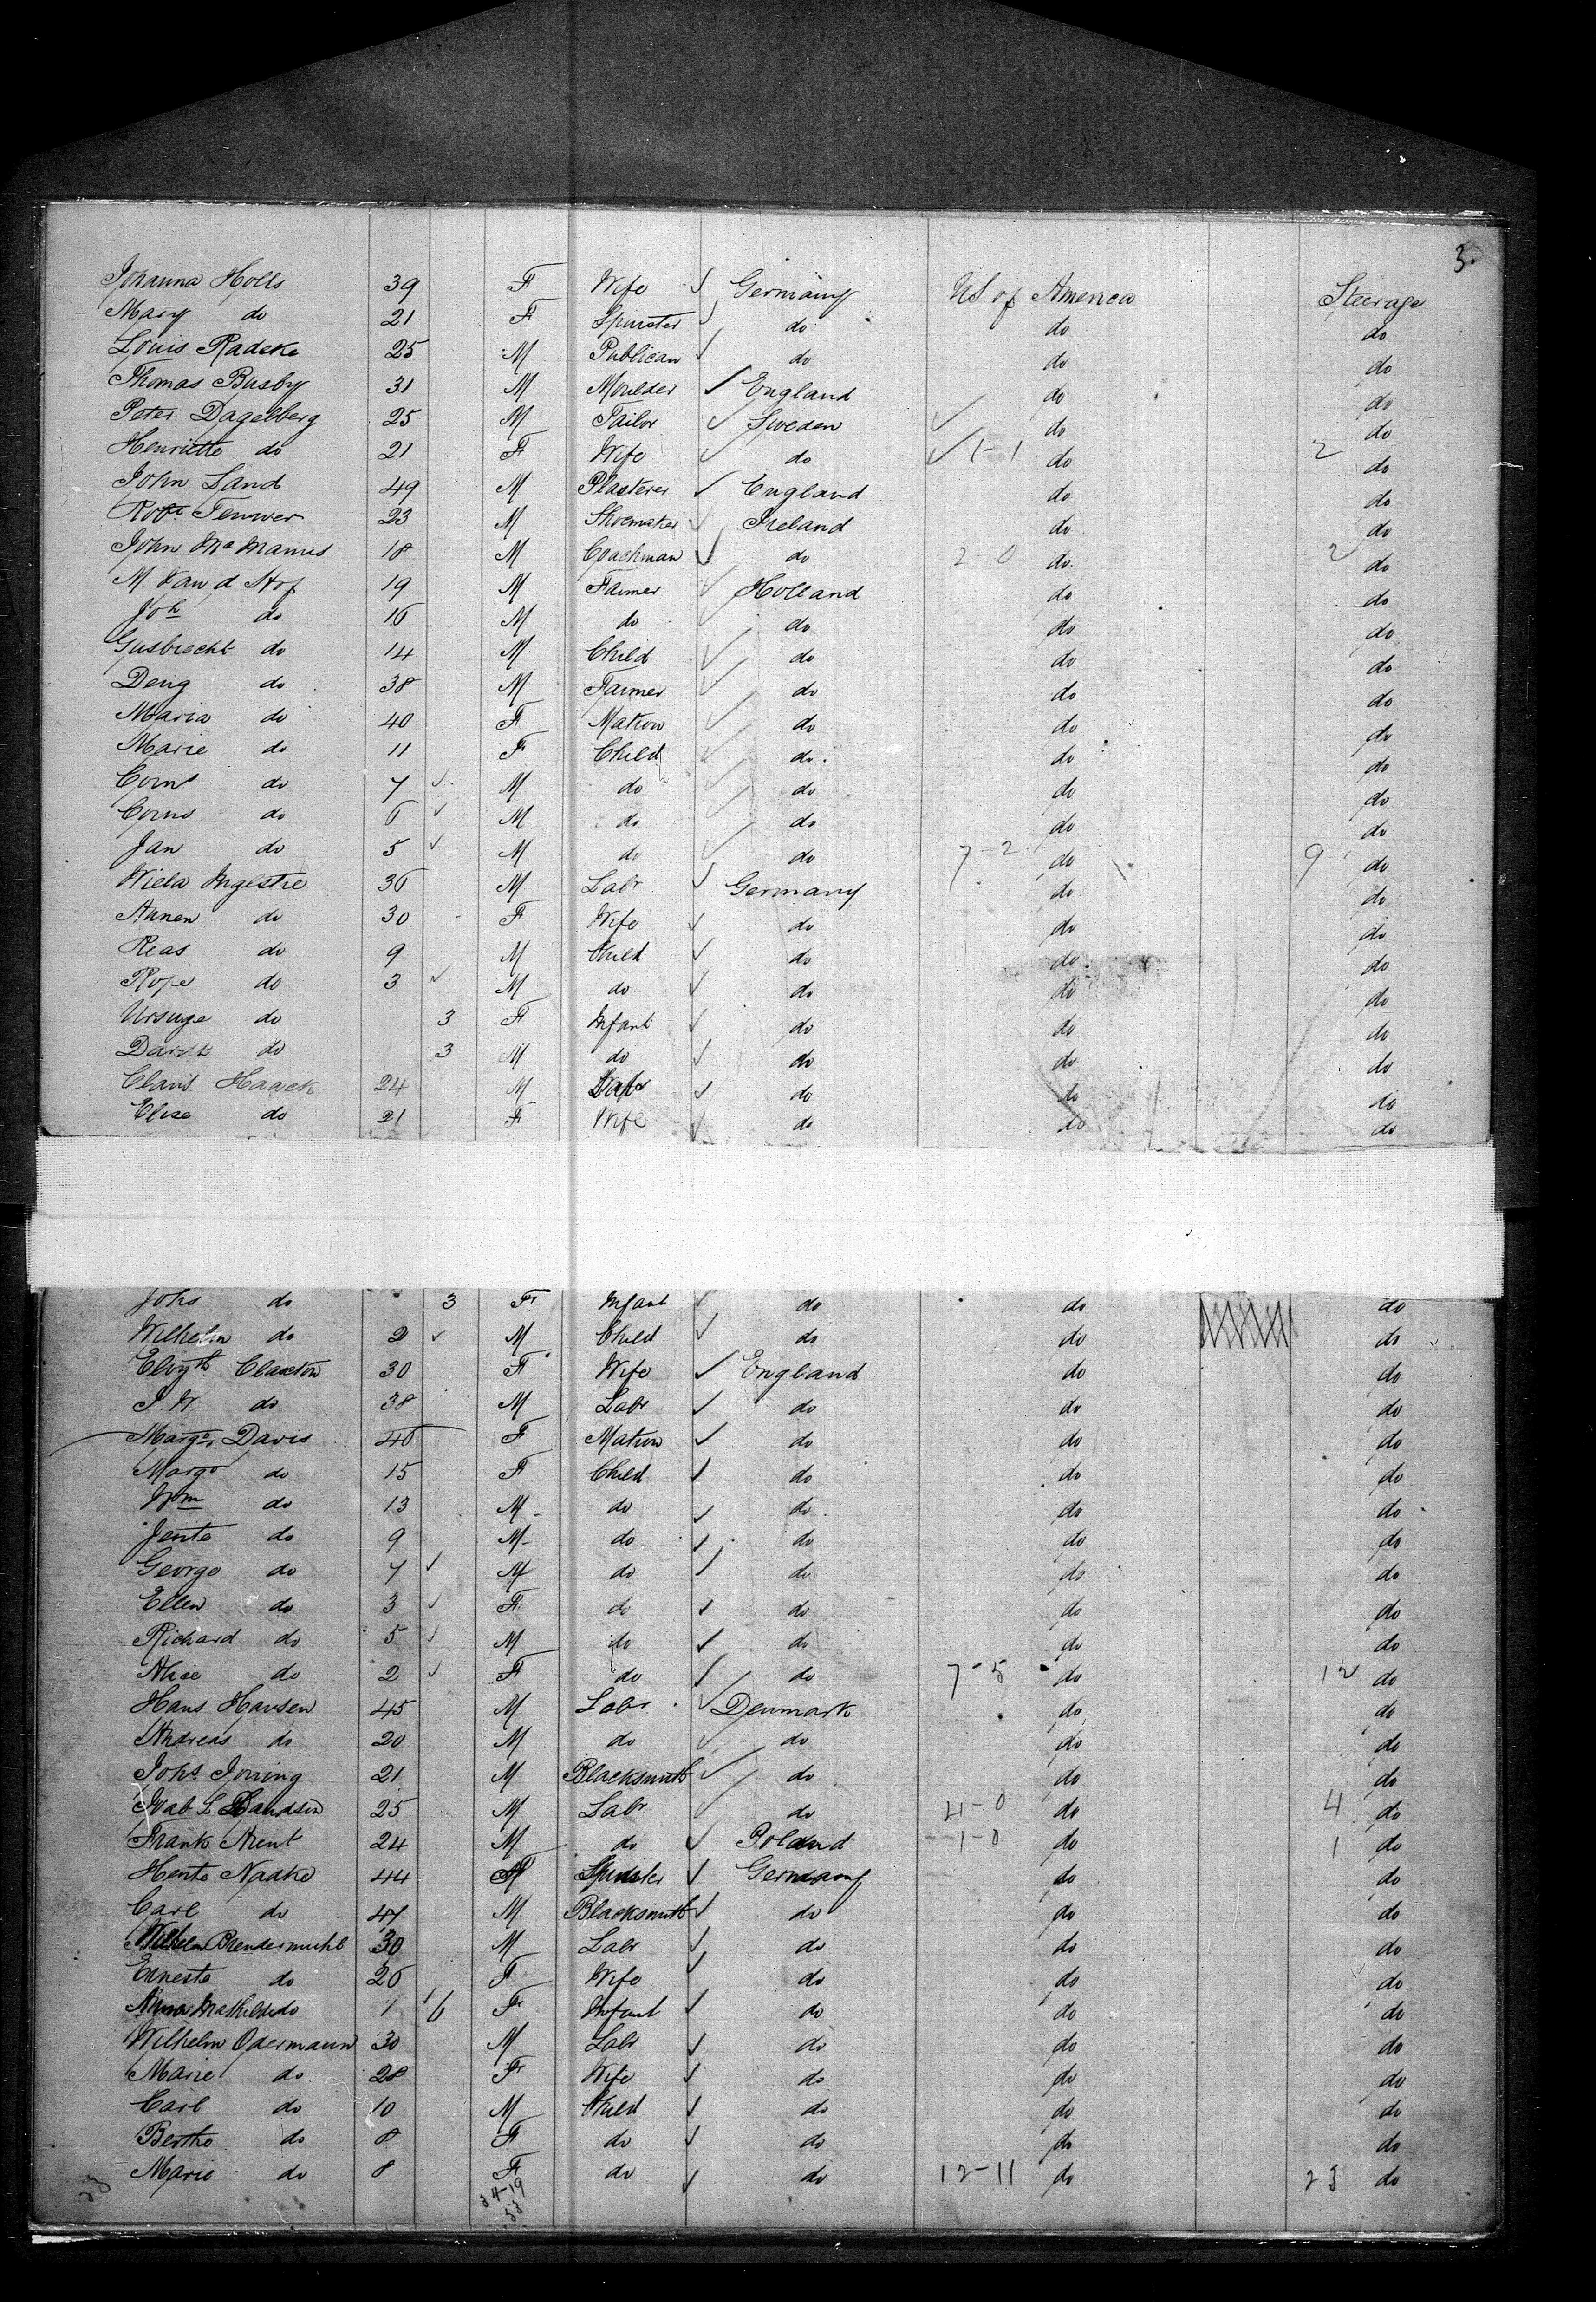 3.
Johanna Holls 39 F Wife ✓ Germany US of America Steerage
Mary do 21 F Spinster ✓ do do do
Louis Radeke 25 M Publican ✓ do do do
Thomas Busby 31 M Moulder ✓ England do do
Peter Dagelberg 25 M Tailor ✓ Sweden ✓ do do
Henriette do 21 F Wife ✓ do ✓ 1-1 do 2 do
John Land 49 M Plasterer ✓ England do do
Robt 23 M Shoemaker ✓ Ireland do do
John McManus 18 M Coachman ✓ do 2-0 do 2 do
M. Van d Hof 19 M Farmer ✓ Holland do do
Joh do 16 M do ✓ do do do
Gysbrecht do 14 M Child ✓ do do do
do 38 M Farmer ✓ do do do
Maria do 40 F Matron ✓ do do do
Marie do 11 F Child ✓ do do do
Corns do 7 ✓ M do ✓ do do do
Corns do 6 ✓ M do ✓ do do do
Jan do 5 ✓ M do ✓ do 7-2 do 9 do
36 M Labr ✓ Germany do do
do 30 F Wife ✓ do do do
Reas do 9 M Child ✓ do do do
do 3 ✓ M do ✓ do do do
do 3 F Infant ✓ do do do
do 3 M do ✓ do do do
Claus Haack 24 M Labr ✓ do do do
Elise do 21 F Wife ✓ do do do
Johs do 3 F Infant ✓ do do do
Wilhelm do 2 ✓ M Child ✓ do do do
Claxton 30 F Wife ✓ England do do
J. W. do 38 M Labr ✓ do do do
Margt Davis 46 F Matron ✓ do do do
Margt do 15 F Child ✓ do do do
Wm do 13 M do ✓ do do do
do 9 M do ✓ do do do
George do 7 ✓ M do ✓ do do do
Ellen do 3 ✓ F do ✓ do do do
Richard do 5 ✓ M do ✓ do do do
Alice do 2 ✓ F do ✓ do 7-5 do 12 do
Hans Hansen 45 M Labr ✓ Denmark do do
Andreas do 20 M do ✓ do do do
Johs 21 M Blacksmith ✓ do do do
25 M Labr ✓ do 4-0 do 4 do
Frank Arent 24 M do ✓ Poland 1-0 do 1 do
Naake 44 F Spinster ✓ Germany do do
Carl do 47 M Blacksmith ✓ do do do
Wilhelm Brendermuhl 30 M Labr ✓ do do do
Erneste do 26 F Wife ✓ do do do
Anna Mathilde do F Infant ✓ do do do
Wilhelm Odermann 30 M Labr ✓ do do do
Marie do 28 F Wife ✓ do do do
Carl do 10 M Child ✓ do do do
Bertha do 8 F do ✓ do do do
Marie do 8 F do ✓ do 12-11 do 23 do
34-19
53